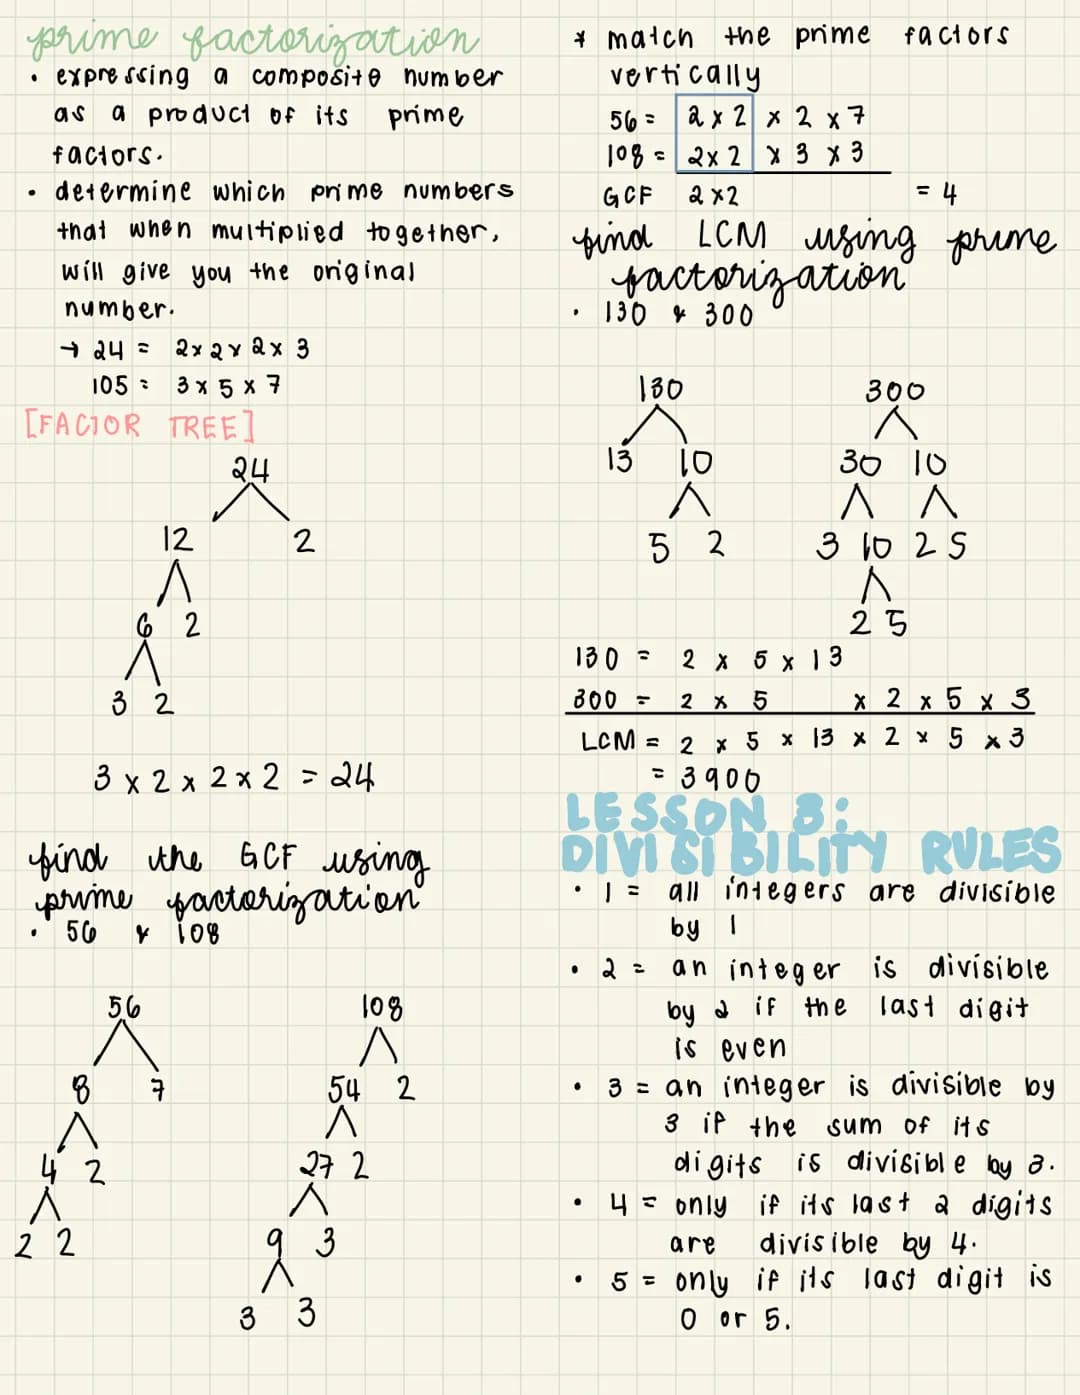 prime factorization
• expressing a composite number
as a product of its prime
factors.
• determine which prime numbers
that when multiplied together,
will give you the original
number.
→ 24 = 2 x 2 x 2 x 3
105 = 3 x 5 x 7
[FACTOR TREE]
24
12 2
6 2
3 2
3 x 2 x 2 x 2 = 24
find the GCF using
prime factorization
• 56 & 108
56 108
8 7 54 2
4 2 27 2
2 2 9 3
3 3
* match the prime factors
vertically
56 = 2 x 2 x 2 x 7
108 = 2 x 2 x 3 x 3
GCF 2 x 2 = 4
find LCM using prime
factorization
• 130 & 300
130 300
13 10 30 10
5 2 3 10 2 5
2 5
130 = 2 x 5 x 13
300 = 2 x 5 x 2 x 5 x 3
LCM = 2 x 5 x 13 x 2 x 5 x 3
= 3900
LESSON 3:
DIVISIBILITY RULES
• 1 = all integers are divisible
by 1
• 2 = an integer is divisible
by 2 if the last digit
is even
• 3 = an integer is divisible by
3 if the sum of its
digits is divisible by 3.
• 4 = only if its last 2 digits
are divisible by 4.
• 5 = only if its last digit is
0 or 5.